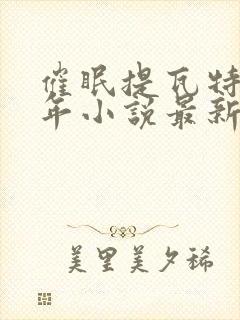 催眠提瓦特
年小説最新
美里美夕稀